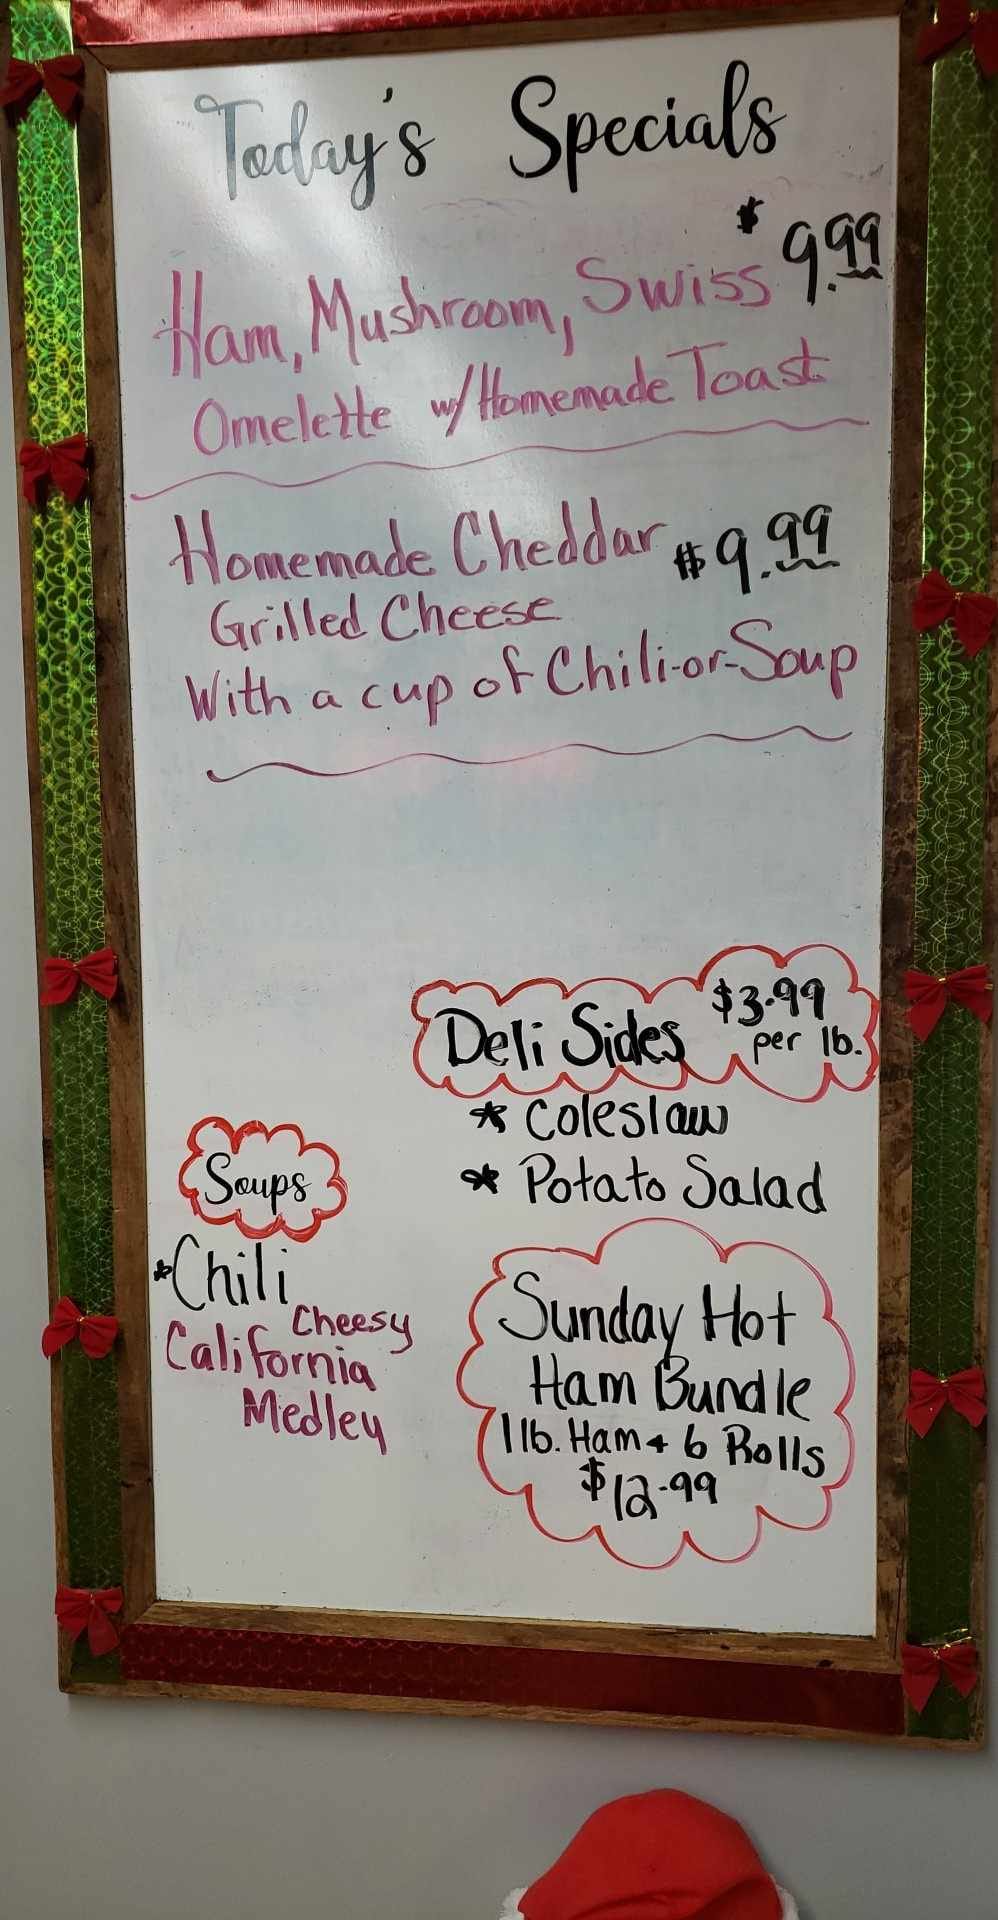 Today's Specials
$9.99
Ham, Mushroom, Swiss
Omelette w/Homemade Toast
Homemade Cheddar $9.99
Grilled Cheese
With a cup of Chili-or-Soup
Deli Sides $3.99
per lb.
* Coleslaw
* Potato Salad
Soups
*Chili
Cheesy
California
Medley
Sunday Hot
Ham Bundle
1 lb. Ham + 6 Rolls
$12.99